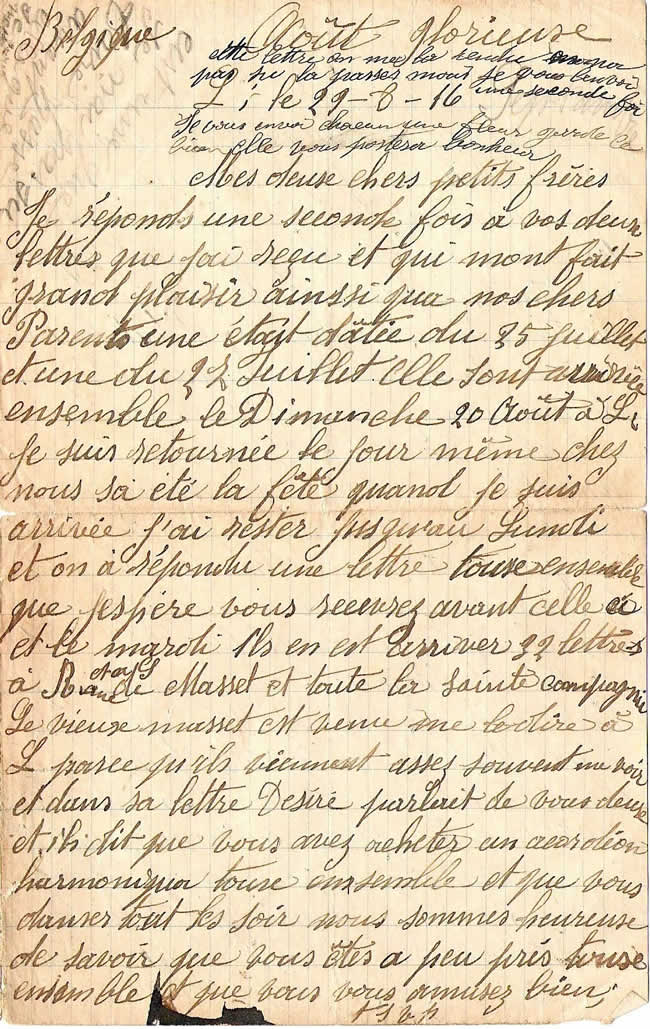 Belgique Août glorieuse
cette lettre on me la rendu
pas la passer mais je vous
L i le 29-8-16 une seconde foi
Je vous envoi chacun une fleur garde la
bien elle vous portera bonheur
Mes deuse chers petits frères
Je réponds une seconde fois a vos deux
lettres que jai reçu et qui mont fait
grand plaisir ainssi qua nos chers
Parents une était dâtée du 25 juillet
et une du 22 Juillet. Elle sont arrivées
ensemble le Dimanche 20 Août à L
je suis retournée le jour même chez
nous sa été la fête quand je suis
arrivée j'ai rester jusquau Lundi
et on à répondu une lettre touse ensemble
que j'espère vous recevrez avant celle ci
et le mardi ils en est arriver 32 lettres
à R de Masset et toute la sainte compagnie
Le vieuse masset est venu me le dire à
L parce qu'ils viennent assez souvent me voir
et dans sa lettre Désiré parlait de vous deuse
et ils dit que vous avez acheter un acordéon
harmoniqua touse ensemble et que vous
danser tout les soir nous sommes heureuse
de savoir que vous êtes a peu près touse
ensemble et que vous vous amusez bien,
T S V P